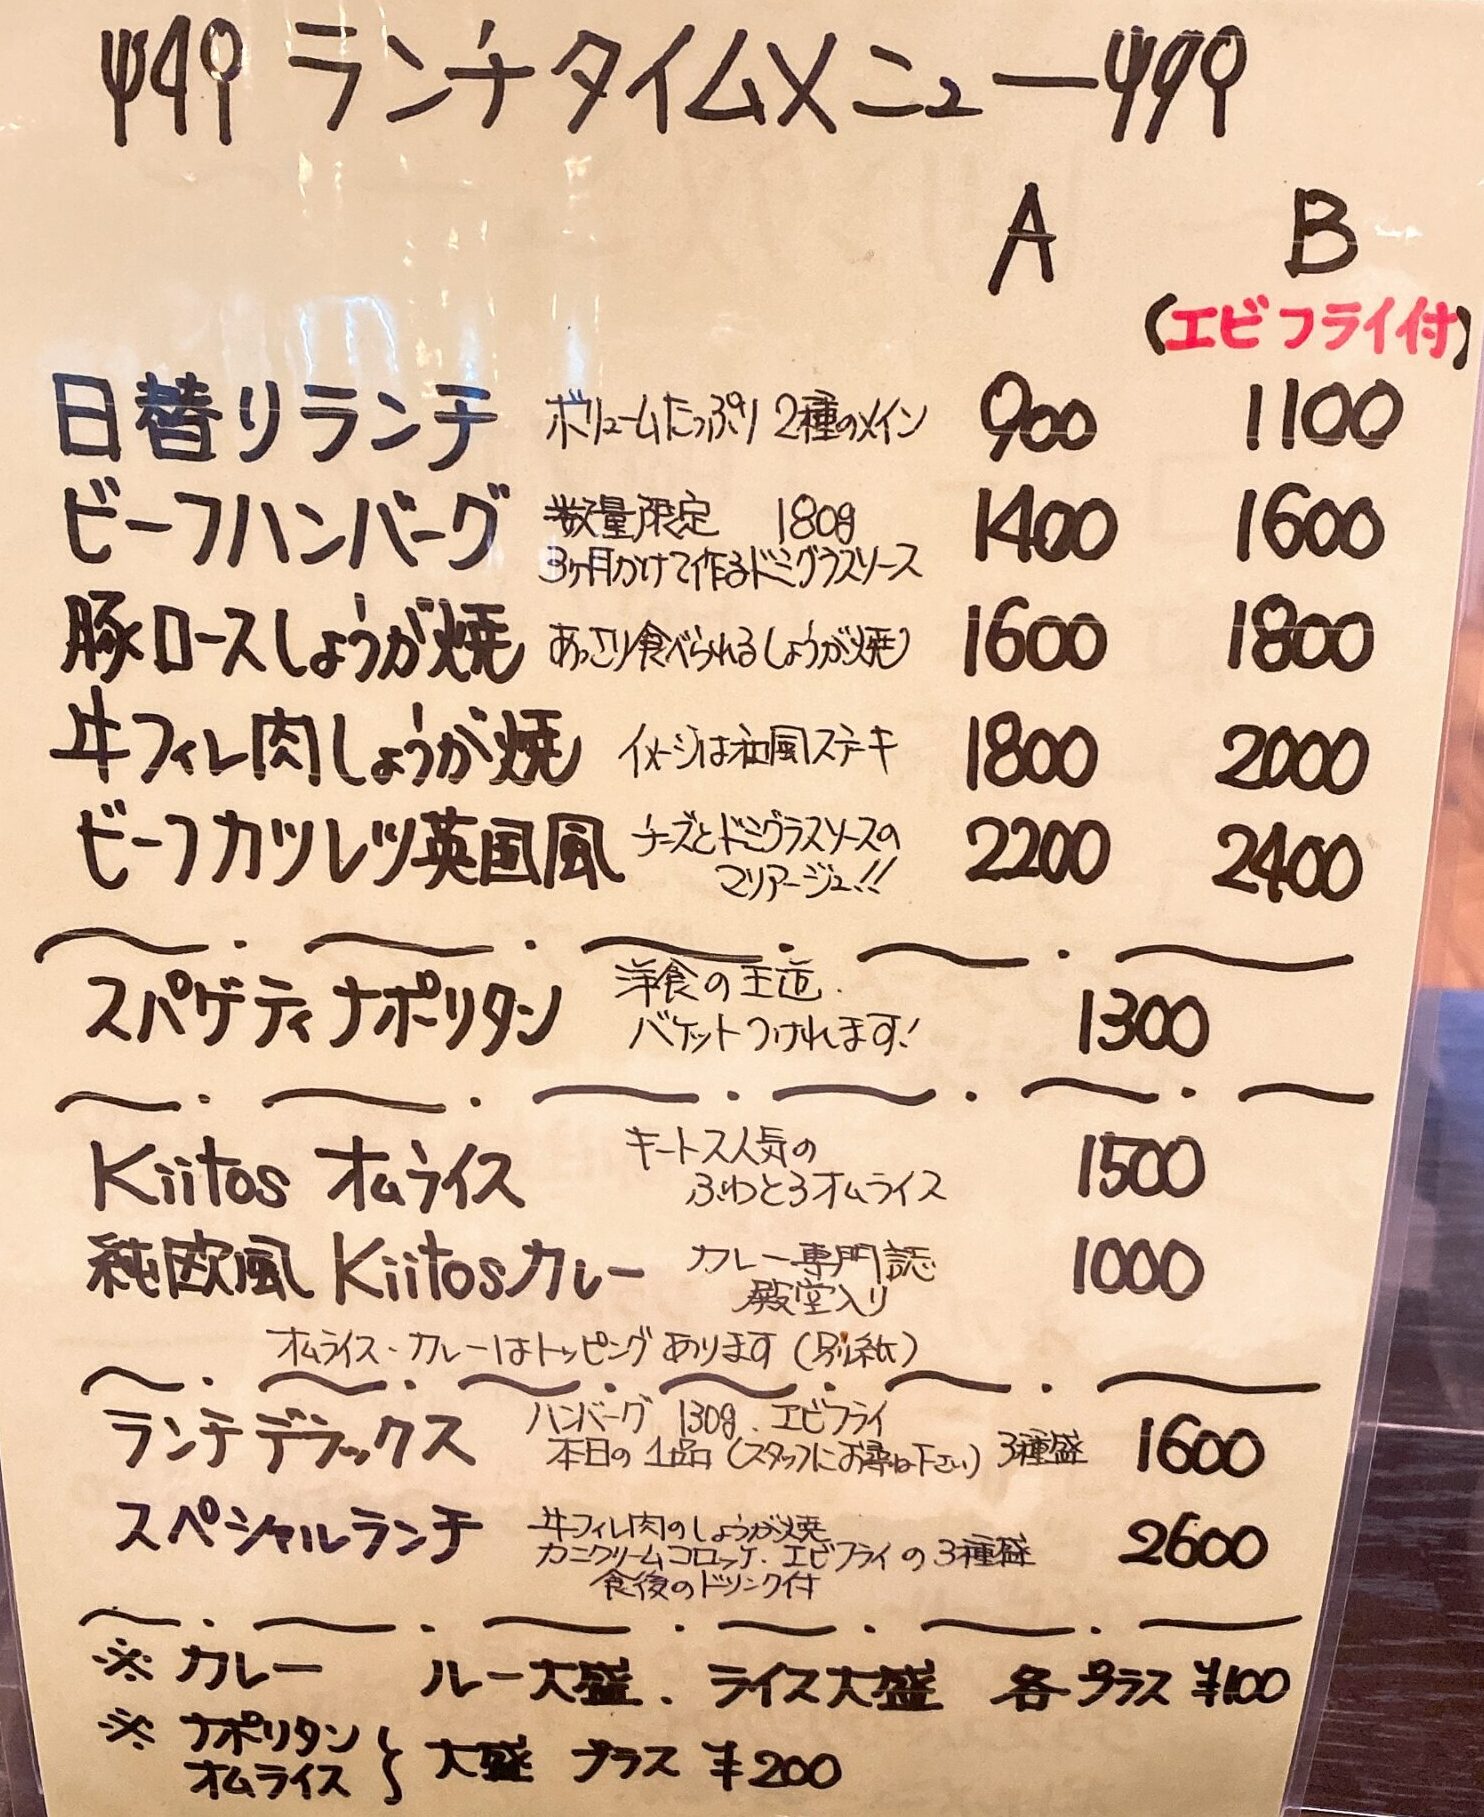 ランチタイムメニュー
A B
(エビフライ付)
日替りランチ ボリュームたっぷり 2種のメイン 900 1100
ビーフハンバーグ 数量限定 180g 1400 1600
3ヶ月かけて作るドミグラスソース
豚ロースしょうが焼 あっさり食べられるしょうが焼 1600 1800
牛フィレ肉しょうが焼 イメージは和風ステーキ 1800 2000
ビーフカツレツ英国風 チーズとドミグラスソースの 2200 2400
マリアージュ!!
スパゲティナポリタン 洋食の王道. 1300
バケットつけれます!
Kiitos オムライス キートス人気の 1500
ふわとろオムライス
純欧風 Kiitosカレー カレー専門誌 1000
殿堂入り
オムライス・カレーはトッピングあります(別紙)
ランチデラックス ハンバーグ 130g. エビフライ 1600
本日の1品(スタッフにお尋ね下さい) 3種盛
スペシャルランチ 牛フィレ肉のしょうが焼 2600
カニクリームコロッケ. エビフライの3種盛
食後のドリンク付
※ カレー ルー大盛. ライス大盛 各プラス ¥100
※ ナポリタン
オムライス } 大盛 プラス ¥200